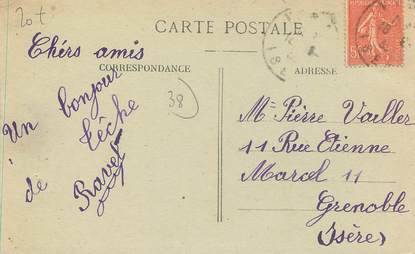 20+
CARTE POSTALE
Chérs amis
CORRESPONDANCE
ADRESSE
Un bonjour
de Cêche
Ravet
38
Mr Pierre Vailler
11 Rue Etienne
Marcel 11
Grenoble
(Isère)